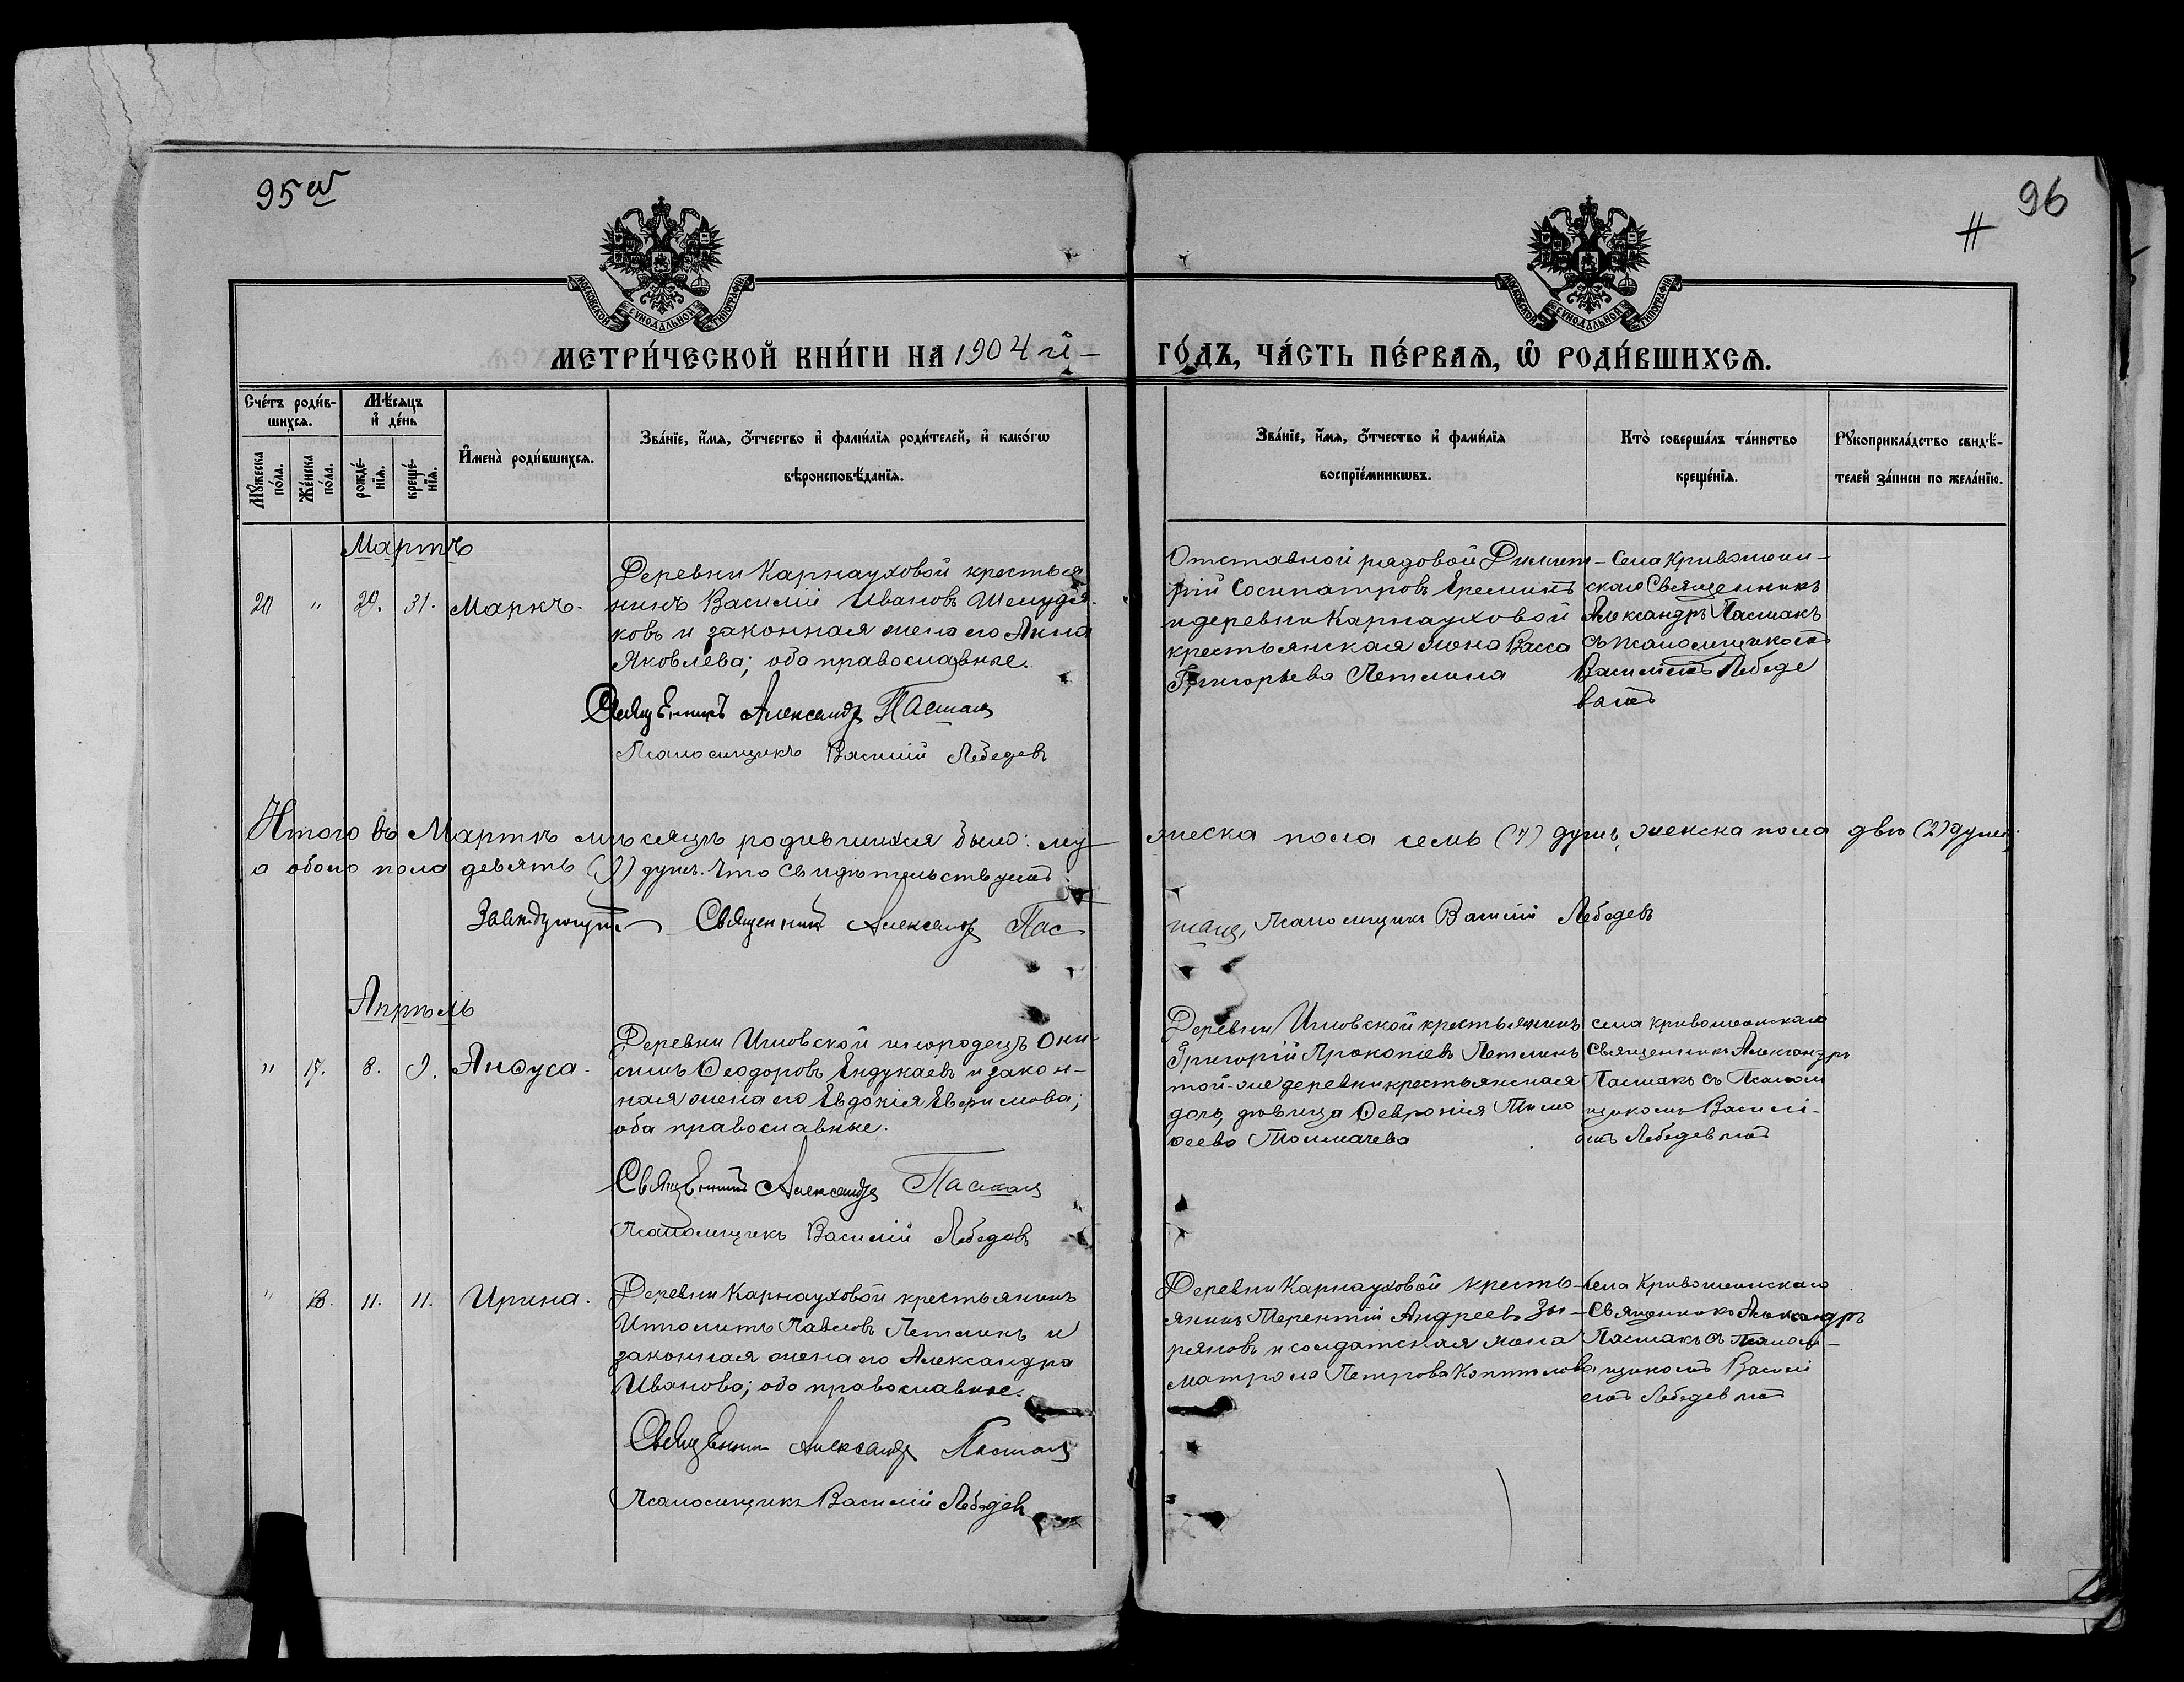 95 об
96
МОСКОВСКОЙ СУНОДАЛЬНОЙ ТИПОГРАФІИ
МОСКОВСКОЙ СУНОДАЛЬНОЙ ТИПОГРАФІИ
МЕТРИ́ЧЕСКОЙ КНИ́ГИ НА 1904 й
ГО́ДЪ, ЧА́СТЬ ПЕ́РВАѦ, Ѡ҆ РОДИ́ВШИХСѦ.
Сче́тъ роди́в-
шихсѧ.
Мꙋ́жеска по́ла.
Же́нска по́ла.
Мѣ́сѧцъ
и҆ де́нь
рожде́-
нїѧ.
креще́-
нїѧ.
И҆мена̀ роди́вшихсѧ.
Зва́нїе, и҆́мѧ, ѻ҆́тчество и҆ фами́лїѧ роди́телей, и҆ како́гѡ
вѣроисповѣ́данїѧ.
Зва́нїе, и҆́мѧ, ѻ҆́тчество и҆ фами́лїѧ
воспрїе́мникѡвъ.
Кто̀ соверша́лъ та́инство
креще́нїѧ.
Рꙋкоприкла́дство свидѣ́-
телей за́писи по жела́нїю.
Мартъ
20 " 29. 31. Маркъ.
Деревни Карнауховой крестья
нинъ Василій Ивановъ
ковъ и законная жена его Анна
Яковлева; оба православные.
Священникъ Александръ Пасмакъ
Псаломщикъ Василій Лебедевъ
Отставной рядовой Димит-
рій Сосипатровъ Ереминъ
и деревни Карнауховой
крестьянская жена Васса
Григорьева Петлина
Села Кривошеин-
скаго Священникъ
Александръ Пасмакъ
съ псаломщикомъ
Василіемъ Лебеде
вымъ
Итого въ Мартѣ мѣсяцѣ родившихся было: му
жеска пола семь (7) душъ, женска пола двѣ (2) души,
а обоего пола девять (9) душъ. Что свидѣтельствуемъ:
Завѣдующій Священникъ Александръ Пас
макъ, Псаломщикъ Василій Лебедевъ
Апрѣль
" 17. 8. 9. Анѳуса.
Деревни Иштовской инородецъ Они-
симъ Ѳеодоровъ Ендукаевъ и закон-
ная жена его Евдокія Евфимова;
оба православные.
Священникъ Александръ Пасмакъ
Псаломщикъ Василій Лебедевъ
Деревни Иштовской крестьянинъ
Григорій Прокопіевъ Петлинъ
той-же деревни крестьянская
дочь, дѣвица Ѳевронія Тимо
ѳеева Толмачева
села Кривошеинскаго
Священникъ Александръ
Пасмакъ съ Псалом
щикомъ Василі-
емъ Лебедевымъ
" 18. 11. 11. Ирина.
Деревни Карнауховой крестьянинъ
Ипполитъ Павловъ Петлинъ и
законная жена его Александра
Иванова; оба православные.
Священникъ Александръ Пасмакъ
Псаломщикъ Василій Лебедевъ
Деревни Карнауховой кресть-
янинъ Терентій Андреевъ Зы-
ряновъ и солдатская жена
Матрона Петрова Копылова
Села Кривошеинскаго
Священникъ Александръ
Пасмакъ съ Псалом-
щикомъ Васили
емъ Лебедевымъ